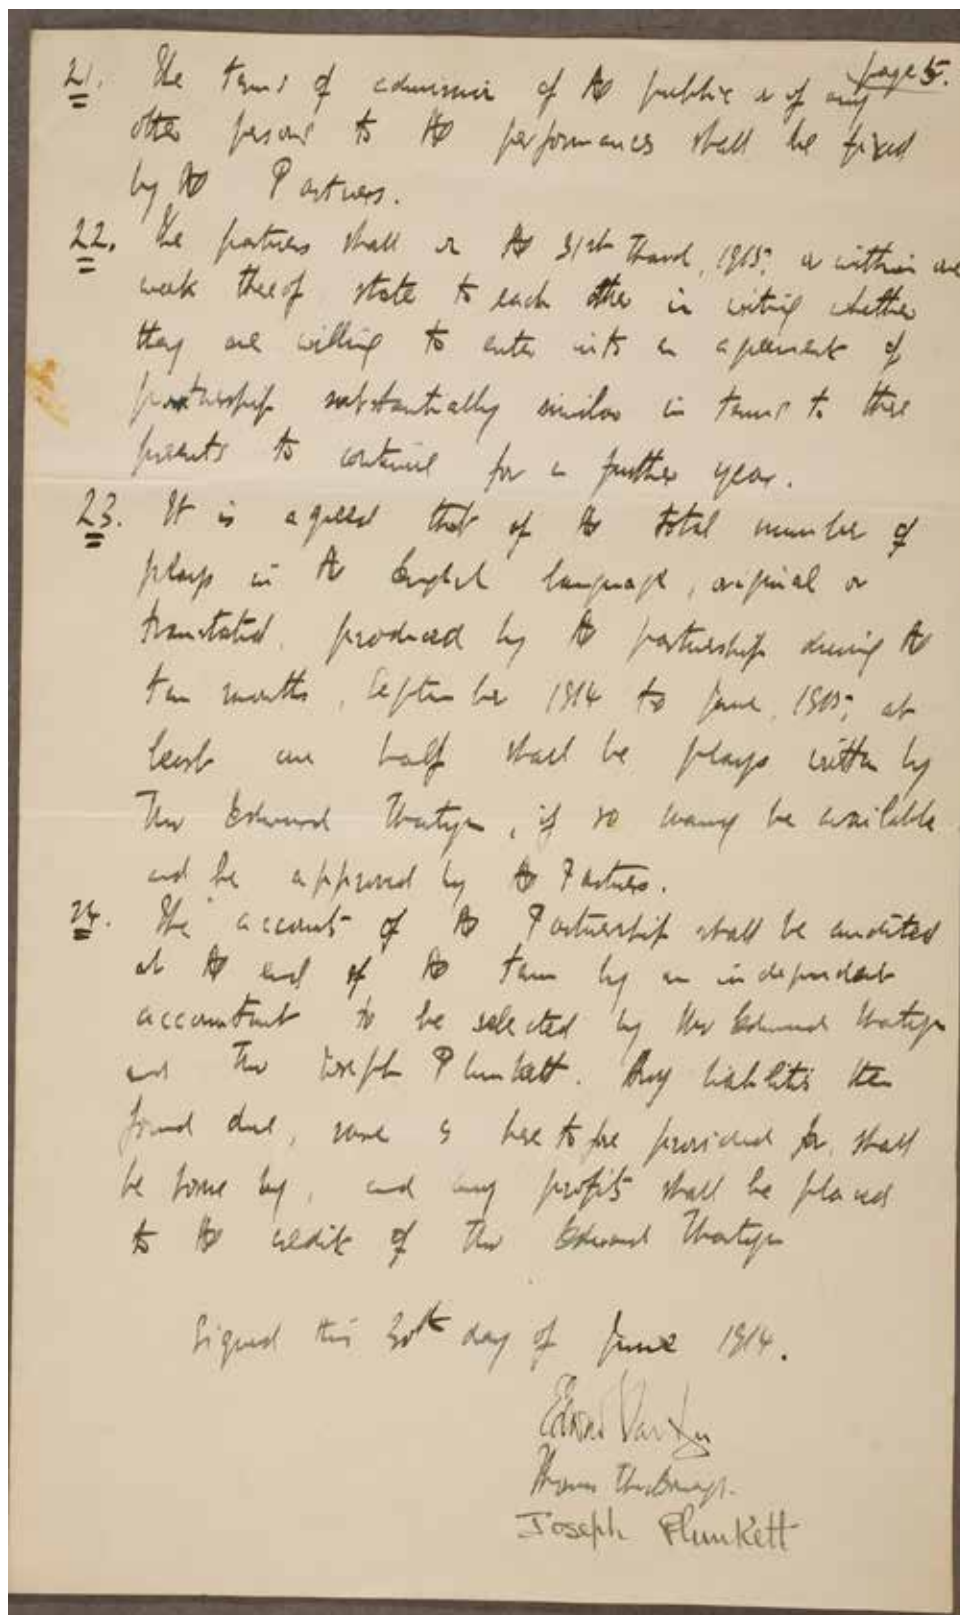 page 5.
21. The terms of admission of the public or of any
other persons to the performances shall be fixed
by the Partners.
22. The partners shall on the 31st March, 1915, or within one
week thereof state to each other in writing whether
they are willing to enter into an agreement of
partnership substantially similar in terms to these
presents to continue for a further year.
23. It is agreed that of the total number of
plays in the English language, original or
translated, produced by the partnership during the
ten months, September 1914 to June, 1915, at
least one half shall be plays written by
Mr Edward Martyn, if so many be available
and be approved by the Partners.
24. The accounts of the Partnership shall be audited
at the end of the term by an independent
accountant to be selected by Mr Edward Martyn
and Mr Joseph Plunkett. Any liabilities then
found due, save as heretofore provided for, shall
be borne by, and any profits shall be placed
to the credit of Mr Edward Martyn
Signed this 30th day of June 1914.
Edward Martyn
Thomas MacDonagh.
Joseph Plunkett